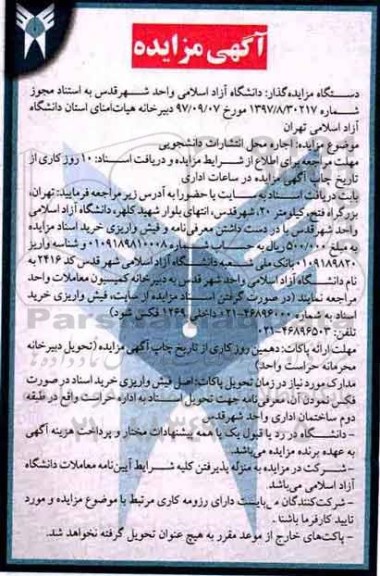 آگهی مزایده
دستگاه مزایده‌گذار: دانشگاه آزاد اسلامی واحد شهرقدس به استناد مجوز
شماره ۱۳۹۷/۸/۳۰۲۱۷ مورخ ۹۷/۰۹/۰۷ دبیرخانه هیات‌امنای استان دانشگاه
آزاد اسلامی تهران
موضوع مزایده: اجاره محل انتشارات دانشجویی
مهلت مراجعه برای اطلاع از شرایط مزایده و دریافت اسناد: ۱۰ روز کاری از
تاریخ چاپ آگهی مزایده در ساعات اداری
بابت دریافت اسناد به سایت یا حضورا به آدرس زیر مراجعه فرمایید: تهران،
بزرگراه فتح، کیلومتر ۲۰، شهرقدس، انتهای بلوار شهید کلهر، دانشگاه آزاد اسلامی
واحد شهرقدس با در دست داشتن معرفی‌نامه و فیش واریزی خرید اسناد مزایده
به مبلغ ۵۰۰/۰۰۰ ریال به حساب شماره ۰۱۰۹۱۸۹۸۱۰۰۰۸ و شناسه واریز
۰۱۰۹۱۸۹۸۲۰ بانک ملی شعبه دانشگاه آزاد اسلامی شهر قدس کد ۲۴۱۶ به
نام دانشگاه آزاد اسلامی واحد شهر قدس به دبیرخانه کمیسیون معاملات واحد
مراجعه نمایند (در صورت گرفتن اسناد مزایده از سایت، فیش واریزی خرید
اسناد به شماره ۴۶۸۹۶۰۰۰-۰۲۱ داخلی ۱۲۶۹ فکس شود)
تلفن: ۴۶۸۹۶۵۰۳-۰۲۱
مهلت ارائه پاکات: دهمین روز کاری از تاریخ چاپ آگهی مزایده (تحویل دبیرخانه
محرمانه حراست واحد)
مدارک مورد نیاز در زمان تحویل پاکات: اصل فیش واریزی خرید اسناد در صورت
فکس نمودن آن، معرفی‌نامه جهت تحویل اسناد به اداره حراست واقع در طبقه
دوم ساختمان اداری واحد شهرقدس
- دانشگاه در رد یا قبول یک یا همه پیشنهادات مختار و پرداخت هزینه آگهی
به عهده برنده مزایده می‌باشد.
- شرکت در مزایده به منزله پذیرفتن کلیه شرایط آیین‌نامه معاملات دانشگاه
آزاد اسلامی می‌باشد.
- شرکت‌کنندگان می‌بایست دارای رزومه کاری مرتبط با موضوع مزایده و مورد
تایید کارفرما باشند.
- پاکت‌های خارج از موعد مقرر به هیچ عنوان تحویل گرفته نخواهد شد.